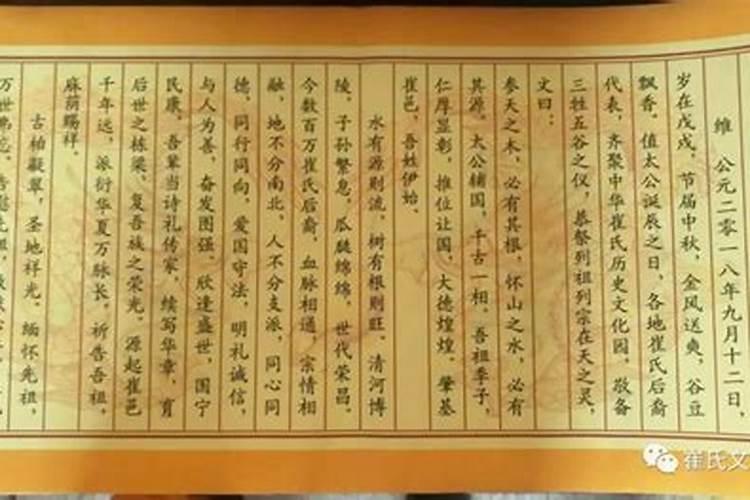 维 公元二零一八年九月十二日，
岁在戊戌，节届中秋，金风送爽，谷豆
飘香。值太公诞辰之日，各地崔氏后裔
代表，齐聚中华崔氏历史文化园，敬备
三牲五谷之仪，恭祭列祖列宗在天之灵，
文曰：
参天之木，必有其根，怀山之水，必有
其源。太公辅国，千古一相。吾祖季子，
仁厚显彰，推位让国，大德煌煌。肇基
崔邑，吾姓伊始。
水有源则流，树有根则旺。清河博
陵，子孙繁息，瓜瓞绵绵，世代荣昌。
今数百万崔氏后裔，血脉相通，宗情相
融，地不分南北，人不分支派，同心同
德，同行同向，爱国守法，明礼诚信，
与人为善，奋发图强。欣逢盛世，国宁
民康，吾辈当诗礼传家，续写华章，育
后世之栋梁，复吾族之荣光。源起崔邑
千年远，派衍华夏万脉长，祈告吾祖，
麻荫赐祥。
古柏凝翠，圣地祥光。缅怀先祖，
万世弗忘。告慰先祖
崔氏文